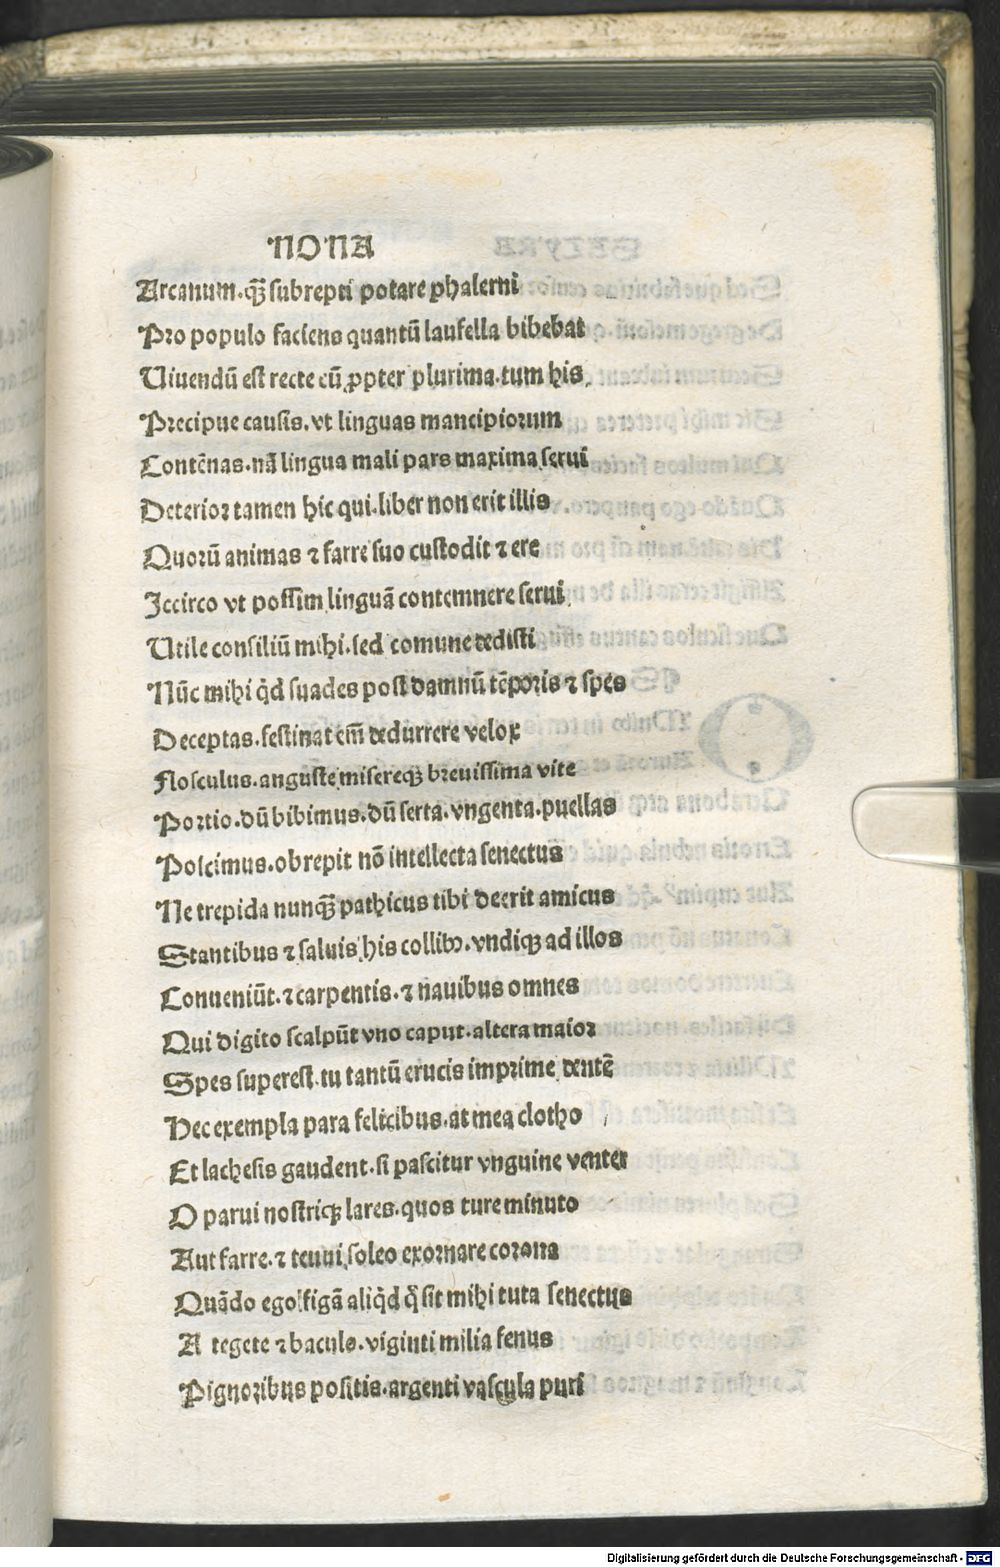 NONA
Arcanum.qꝫ̃ subrepti potare phalerni
Pro populo faciens quantũ laufella bibebat
Viuendũ est recte cũ ꝓpter plurima.tum his
Precipue causis.vt linguas mancipiorum
Contẽnas.nã lingua mali pars maxima serui
Deterior tamen hic qui.liber non erit illis
Quorũ animas ⁊ farre suo custodit ⁊ ere
Iccirco vt possim linguã contemnere serui
Utile consiliũ mihi.sed comune dedisti
Nũc mihi qd̓ suades post damnũ tẽporis ⁊ spes
Deceptas.festinat em̃ decurrere velox
flosculus.anguste misereqꝫ breuissima vite
Portio.dũ bibimus.dũ serta.vngenta.puellas
Poscimus.obrepit nõ intellecta senectus
Ne trepida nunqꝫ̃ pathicus tibi deerit amicus
Stantibus ⁊ saluis his collibꝫ.vndiqꝫ ad illos
Conueniũt.⁊ carpentis.⁊ nauibus omnes
Qui digito scalpũt vno caput.altera maior
Spes superest.tu tantũ erucis imprime dentẽ
Hec exempla para felicibus.at mea clotho
Et lachesis gaudent.si pascitur vnguine venter
O parui nostriqꝫ lares.quos ture minuto
Aut farre.⁊ tenui soleo exornare corona
Quãdo ego figã aliqd̓ q̃ sit mihi tuta senectus
A tegete ⁊ baculo.viginti milia fenus
Pignoribus positis.argenti vascula puri
Digitalisierung gefördert durch die Deutsche Forschungsgemeinschaft - DFG